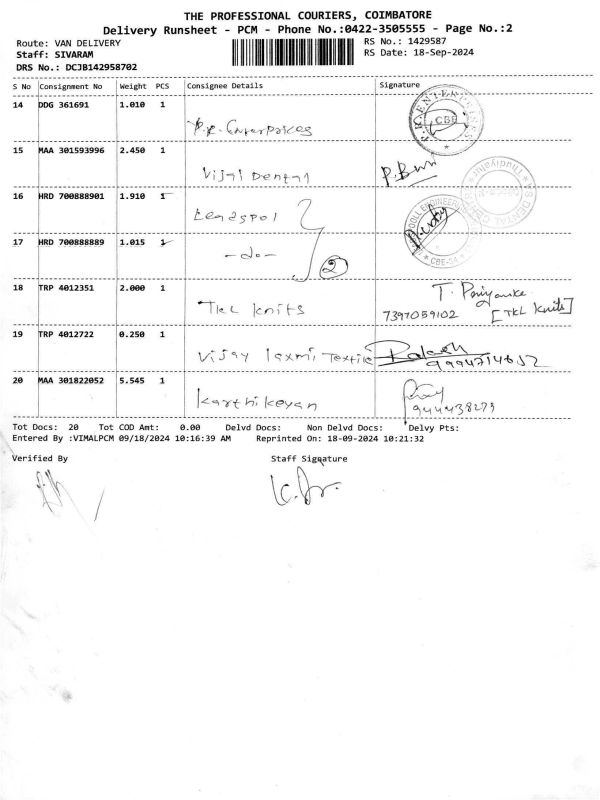 THE PROFESSIONAL COURIERS, COIMBATORE
Delivery Runsheet - PCM - Phone No.:0422-3505555 - Page No.:2
Route: VAN DELIVERY RS No.: 1429587
Staff: SIVARAM RS Date: 18-Sep-2024
DRS No.: DCJB142958702
S No Consignment No Weight PCS Consignee Details Signature
14 DDG 361691 1.010 1
P.R. Enterprises
CBE
15 MAA 301593996 2.450 1
Vijai Dental P.
16 HRD 700888901 1.910 1
17 HRD 700888889 1.015 1
-do- 2
CBE-14
18 TRP 4012351 2.000 1
TKL Knits T. Priyanka
7397059102 [TKL Knits]
19 TRP 4012722 0.250 1
Vijay laxmi Textile
20 MAA 301822052 5.545 1
Karthikeyan 944438273
Tot Docs: 20 Tot COD Amt: 0.00 Delvd Docs: Non Delvd Docs: Delvy Pts:
Entered By :VIMALPCM 09/18/2024 10:16:39 AM Reprinted On: 18-09-2024 10:21:32
Verified By Staff Signature